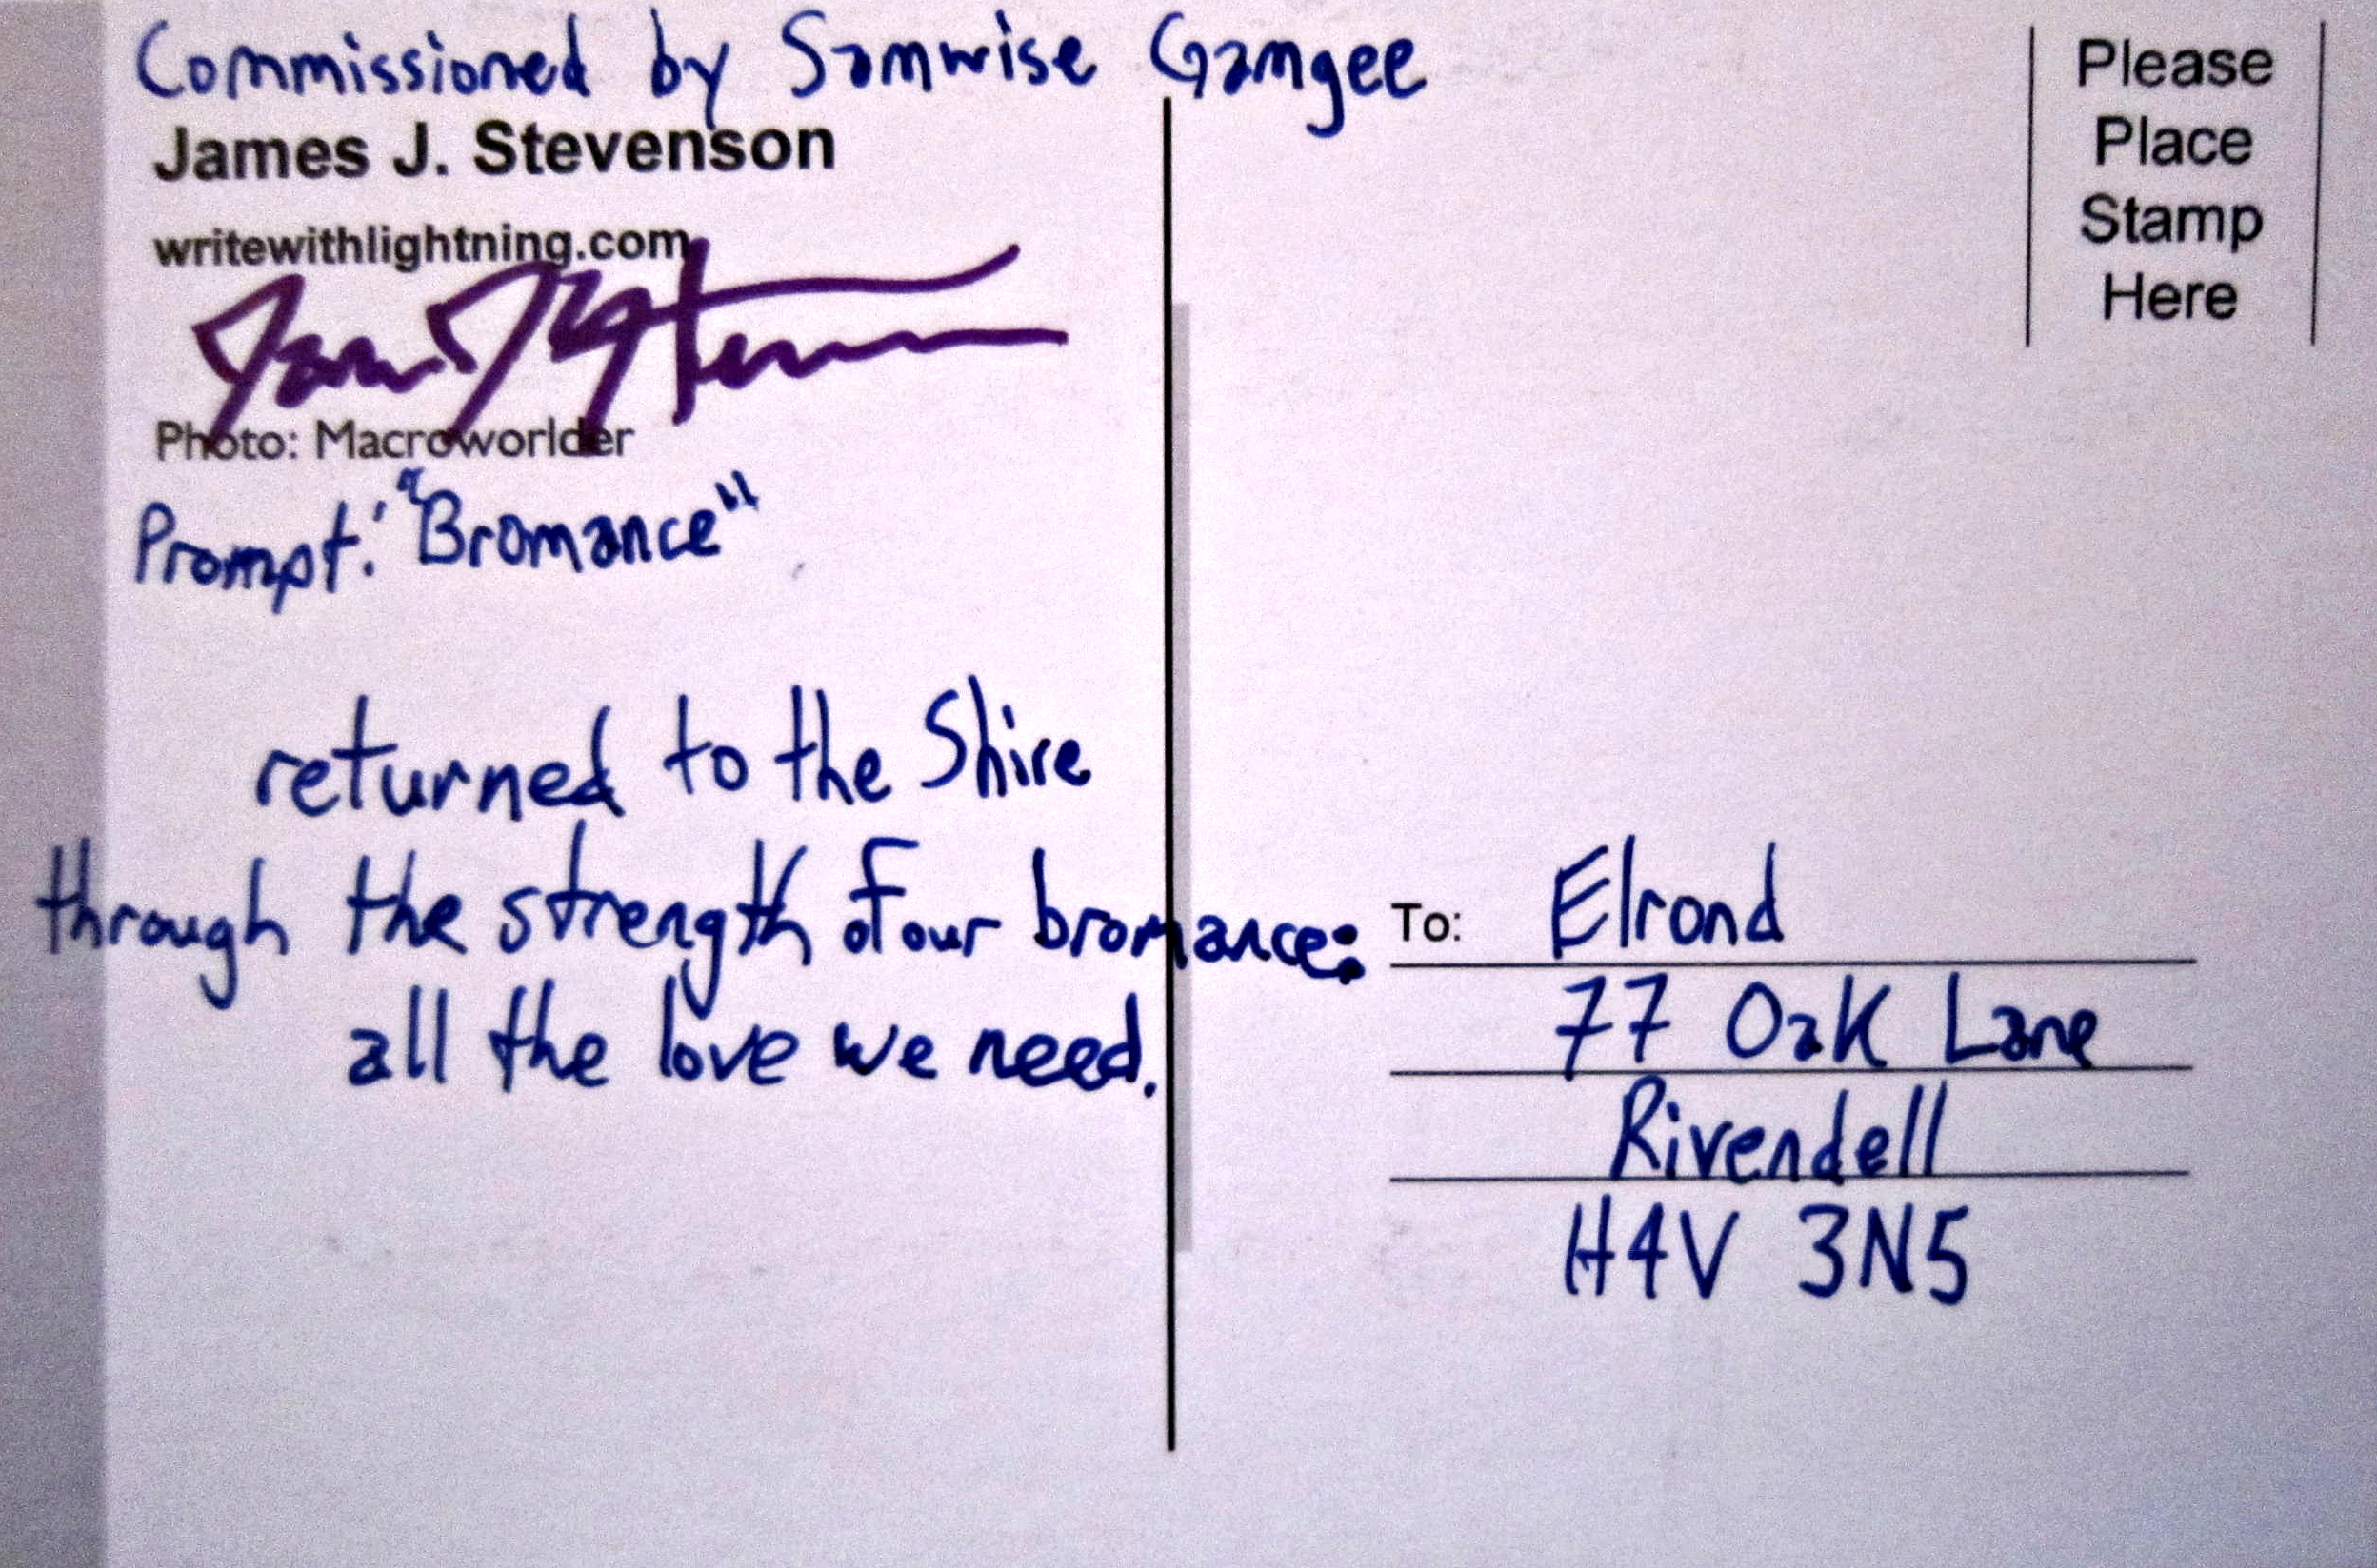 Commissioned by Samwise Gamgee
James J. Stevenson
writewithlightning.com
Photo: Macroworlder
Prompt: "Bromance"
returned to the Shire
through the strength of our bromance:
all the love we need.
Please
Place
Stamp
Here
To: Elrond
77 Oak Lane
Rivendell
H4V 3N5